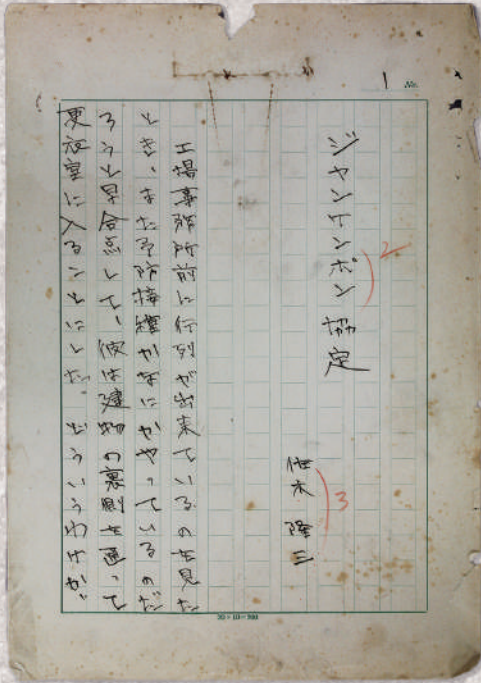 1 No.
ジャンケンポン協定
2
佐木隆三
3
工場事務所前に行列が出来ているのを見た
とき、また予防接種かなにかやっているのだ
ろうと早合点して、彼は建物の裏側を通って
更衣室に入ることにした。どういうわけか、
20×10=200